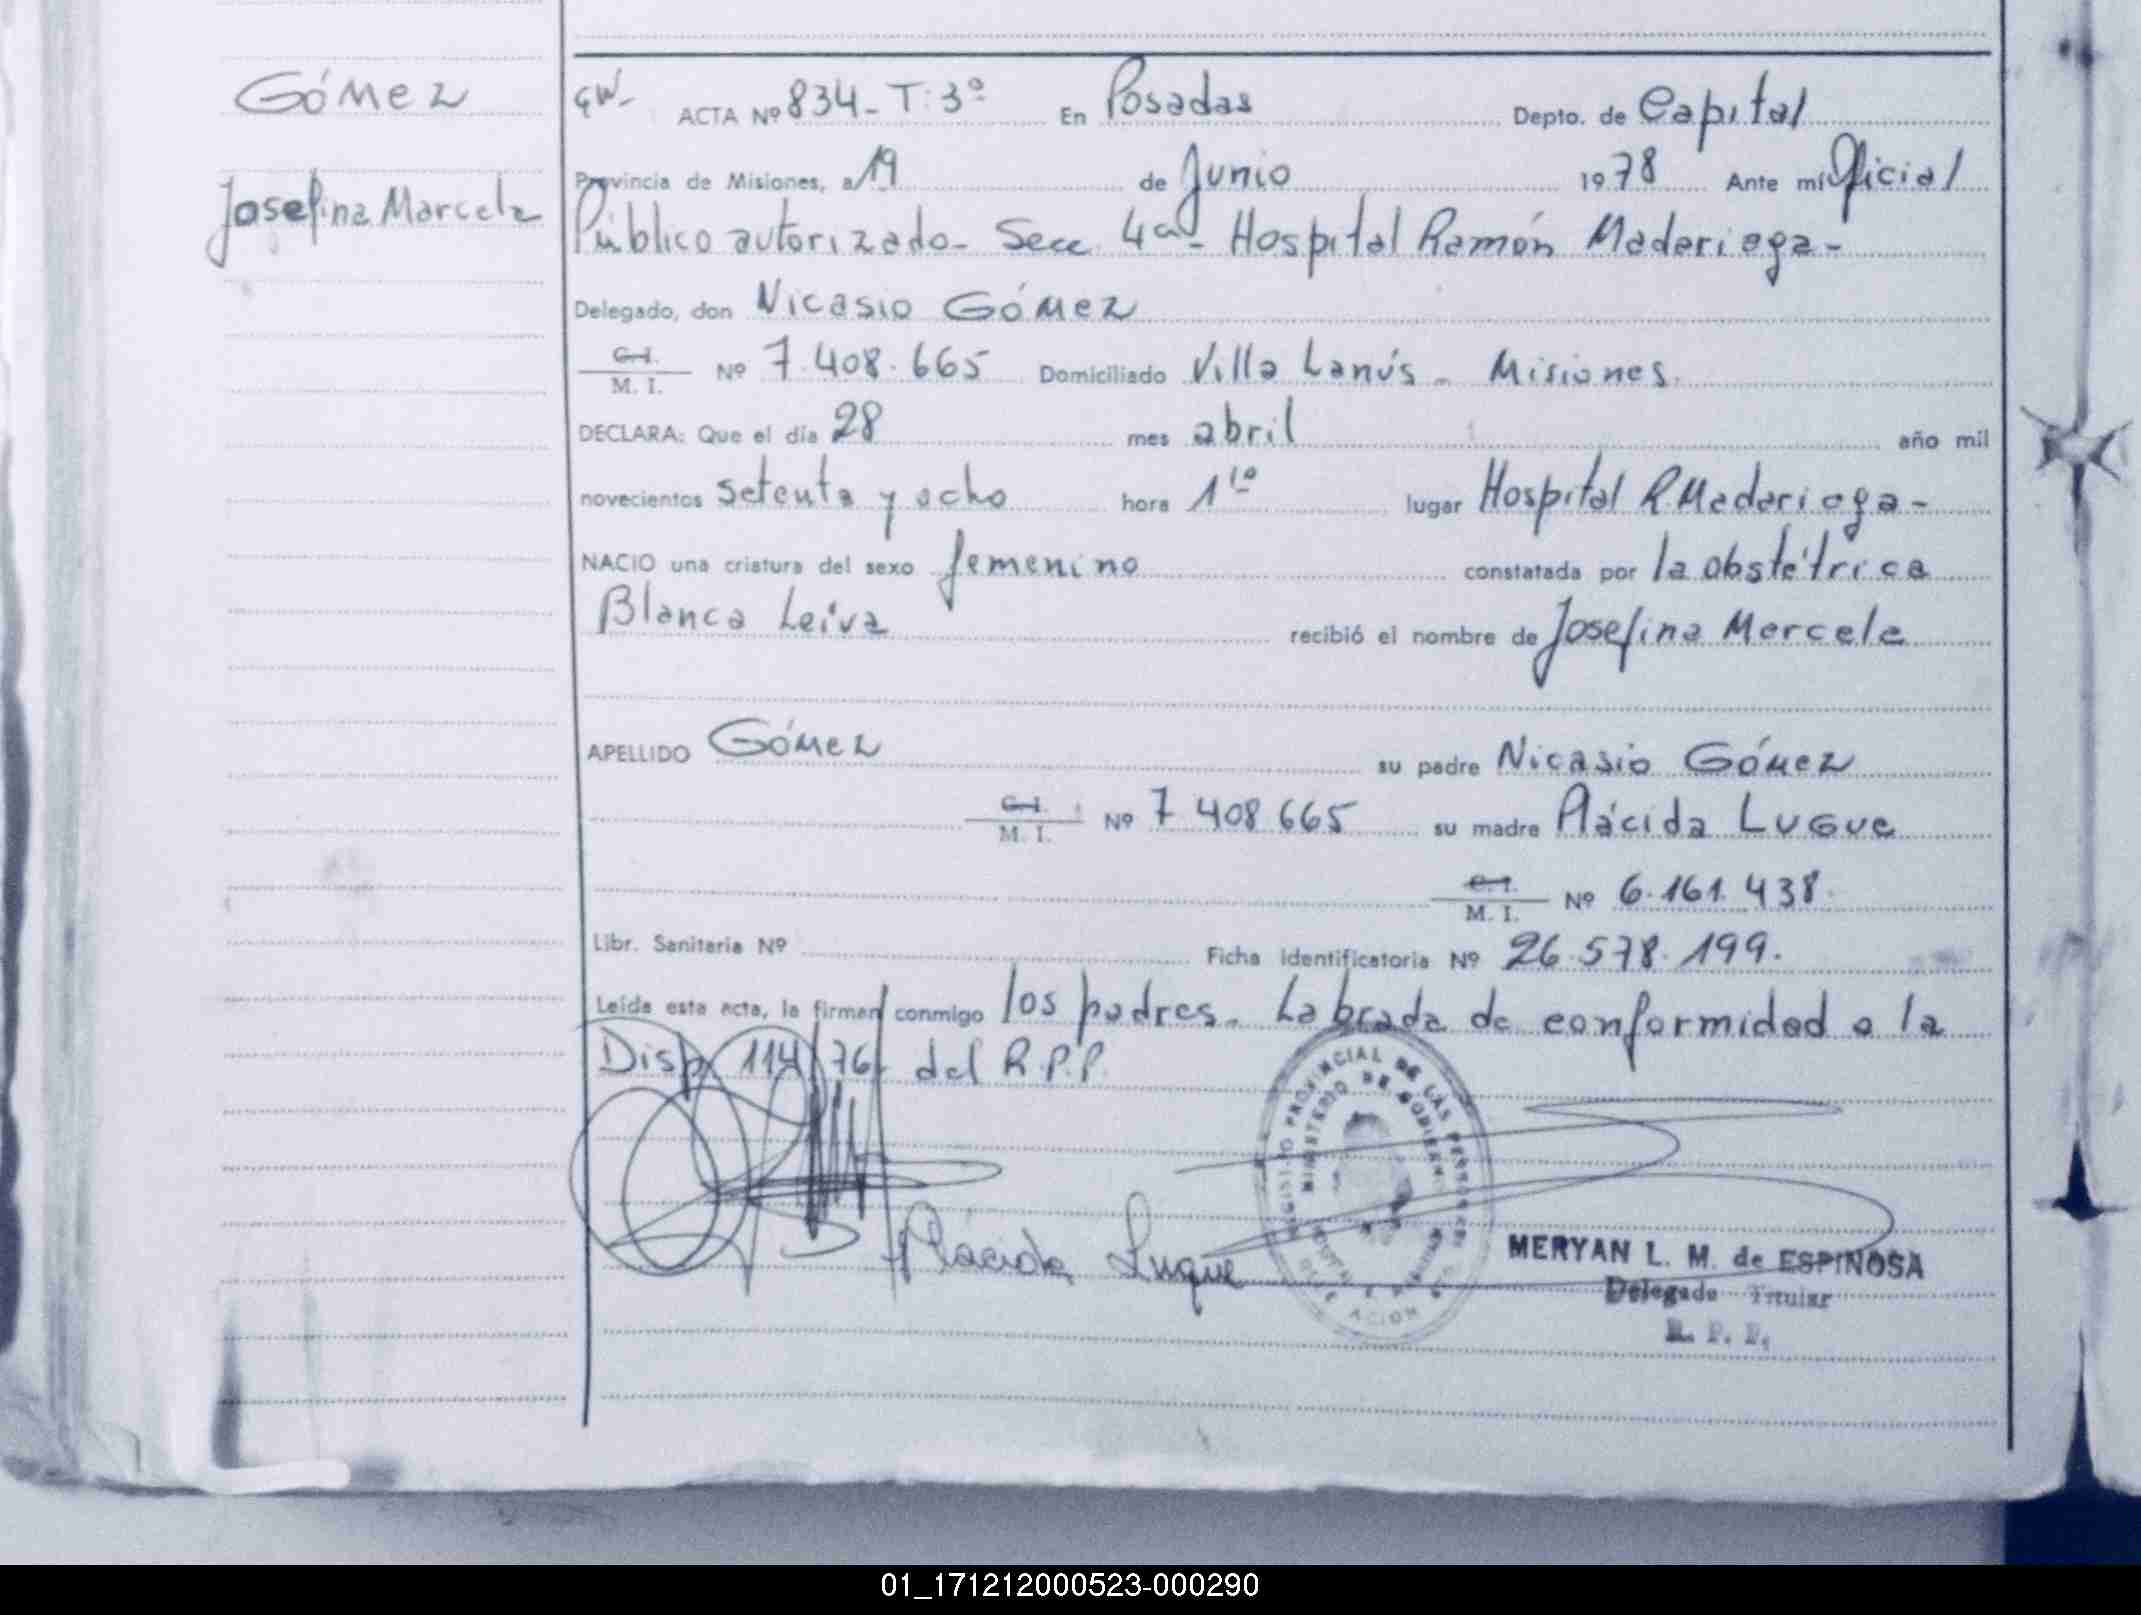 Gómez
Josefina Marcela
GW- ACTA Nº 834- T: 3º En Posadas Depto. de Capital
Provincia de Misiones, a 19 de Junio 1978 Ante mí Oficial
Público autorizado- Secc 4ª- Hospital Ramón Madariaga-
Delegado, don Nicasio Gómez
C.I. / M. I. Nº 7.408.665 Domiciliado Villa Lanús - Misiones.
DECLARA: Que el día 28 mes abril año mil
novecientos setenta y ocho hora 1 10 lugar Hospital R. Madariaga-
NACIO una criatura del sexo femenino constatada por la obstétrica
Blanca Leiva recibió el nombre de Josefina Marcela
APELLIDO Gómez su padre Nicasio Gómez
C.I. / M. I. Nº 7 408 665 su madre Plácida Luque
C.I. / M. I. Nº 6.161.438.
Libr. Sanitaria Nº Ficha identificatoria Nº 26.578.199.
Leída esta acta, la firman conmigo los padres. Labrada de conformidad a la
Disp 114/76 del R.P.P.
REGISTRO PROVINCIAL DE LAS PERSONAS
MINISTERIO DE GOBIERNO
Plácida Luque
MERYAN L. M. de ESPINOSA
Delegado Titular
R. P. P.
01_171212000523-000290